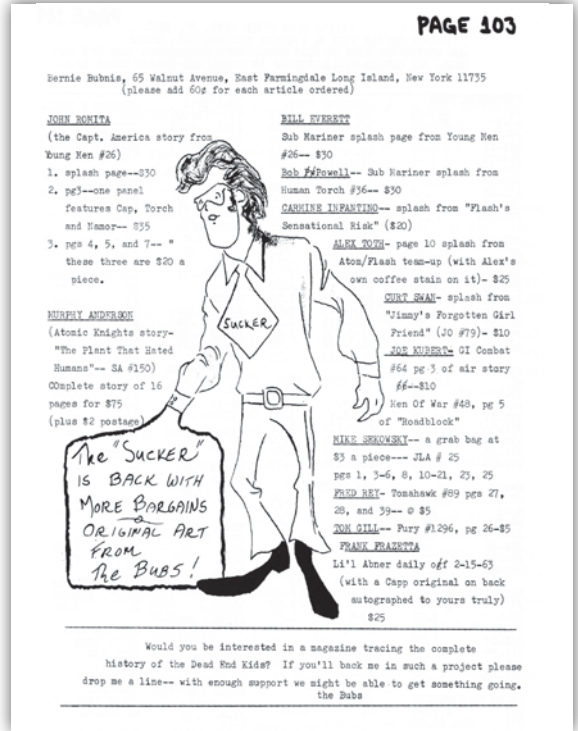 PAGE 103
Bernie Bubnis, 65 Walnut Avenue, East Farmingdale Long Island, New York 11735
(please add 60¢ for each article ordered)
JOHN ROMITA
(the Capt. America story from
Young Men #26)
1. splash page--$30
2. pg3--one panel
features Cap, Torch
and Namor-- $35
3. pgs 4, 5, and 7-- "
these three are $20 a
piece.
MURPHY ANDERSON
(Atomic Knights story-
"The Plant That Hated
Humans"-- SA #150)
COmplete story of 16
pages for $75
(plus $2 postage)
BILL EVERETT
Sub Mariner splash page from Young Men
#26-- $30
Bob Powell-- Sub Mariner splash from
Human Torch #36-- $30
CARMINE INFANTINO-- splash from "Flash's
Sensational Risk" ($20)
ALEX TOTH- page 10 splash from
Atom/Flash team-up (with Alex's
own coffee stain on it)- $25
CURT SWAN- splash from
"Jimmy's Forgotten Girl
Friend" (JO #79)- $10
JOE KUBERT- GI Combat
#64 pg 3 of air story
--$10
Men Of War #48, pg 5
of "Roadblock"
MIKE SEKOWSKY-- a grab bag at
$3 a piece--- JLA # 25
pgs 1, 3-6, 8, 10-21, 23, 25
FRED REY- Tomahawk #89 pgs 27,
28, and 39-- @ $5
TOM GILL-- Fury #1296, pg 26-$5
FRANK FRAZETTA
Li'l Abner daily of 2-15-63
(with a Capp original on back
autographed to yours truly)
$25
SUCKER
The "SUCKER"
IS BACK WITH
MORE BARGAINS
ORIGINAL ART
FROM
The BUBS!
Would you be interested in a magazine tracing the complete
history of the Dead End Kids? If you'll back me in such a project please
drop me a line-- with enough support we might be able to get something going.
the Bubs